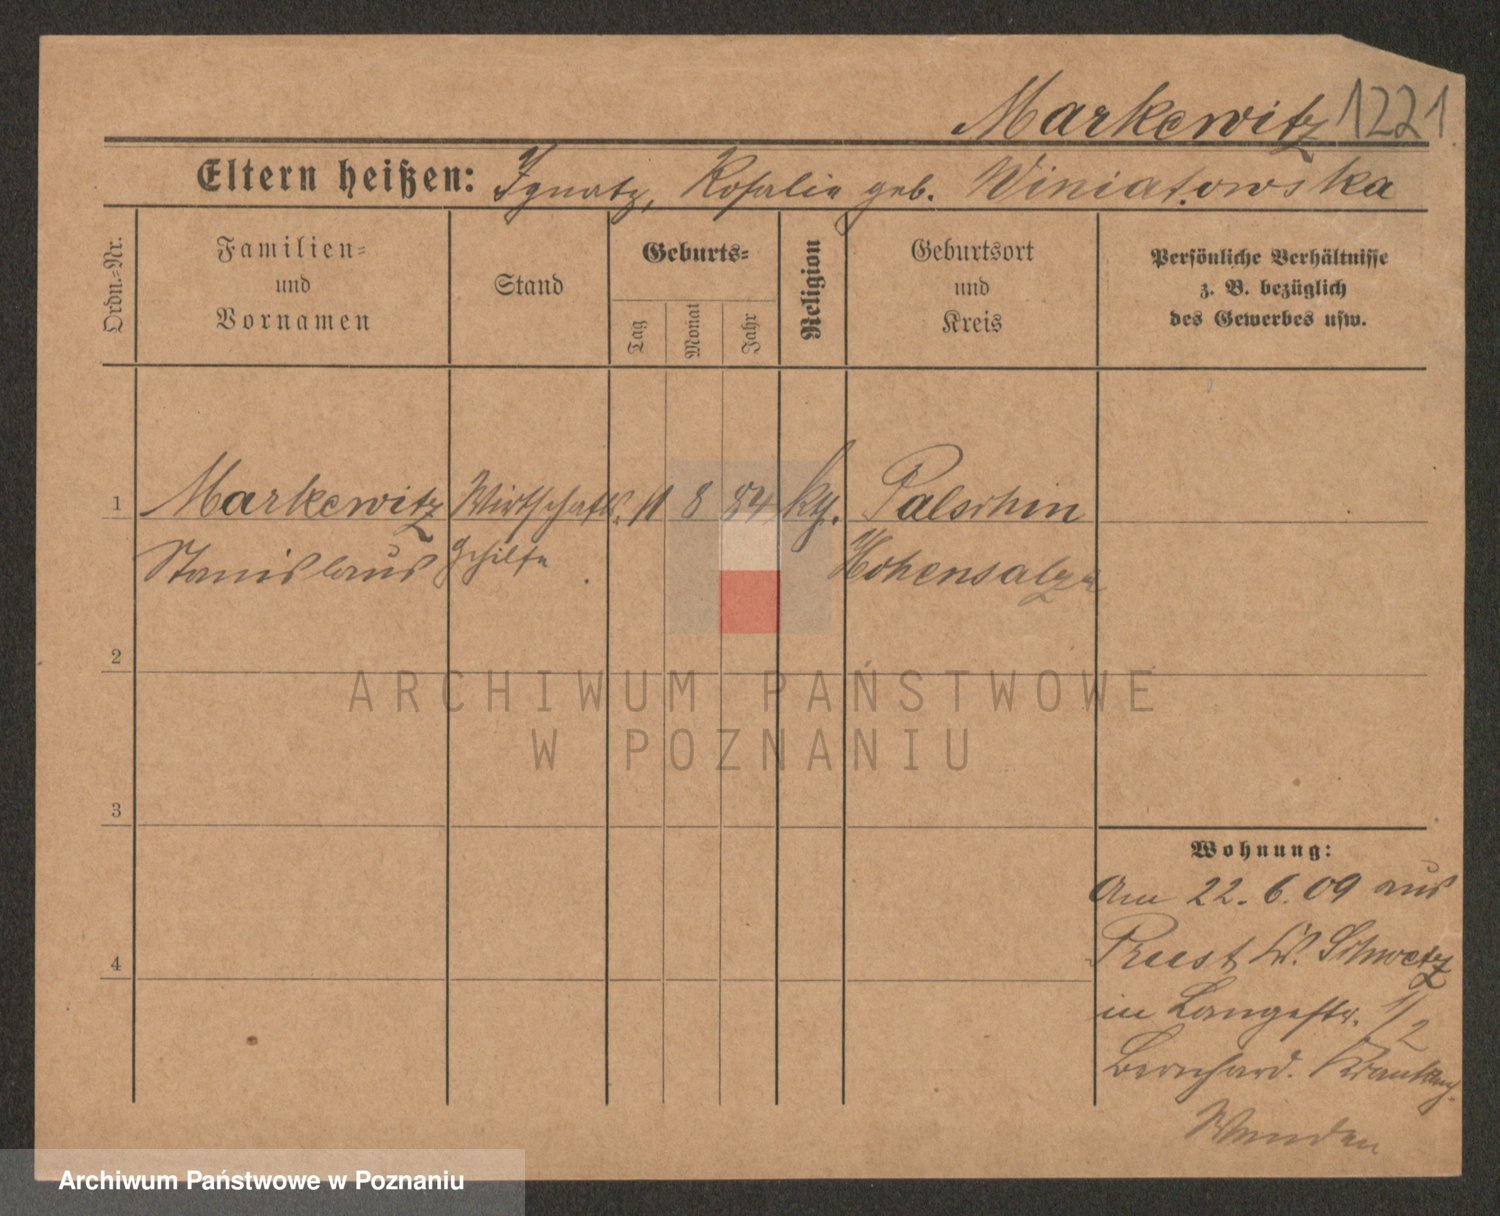 Markewitz 1221
Eltern heißen: Ignatz, Rosalie geb. Winiatowska
Ordn.=Nr.
Familien=
und
Vornamen
Stand
Geburts=
Tag
Monat
Jahr
Religion
Geburtsort
und
Kreis
Persönliche Verhältnisse
z. B. bezüglich
des Gewerbes usw.
1 Markewitz Wirtschafts. 11 8 84 kth. Palschin
Stanislaus gehilfe Hohensalza
2
3
4
Wohnung:
Am 22. 6. 09 aus
Kr. Schwetz
in Langestr. 1/2
Bernhard.
ARCHIWUM PAŃSTWOWE
W POZNANIU
Archiwum Państwowe w Poznaniu